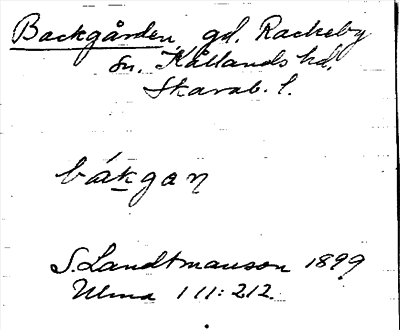 Backgården gd. Rackeby
sn. Kållands hd.
Skarab. l.
bákgan
S. Landtmanson 1899
Ulma 111:212.